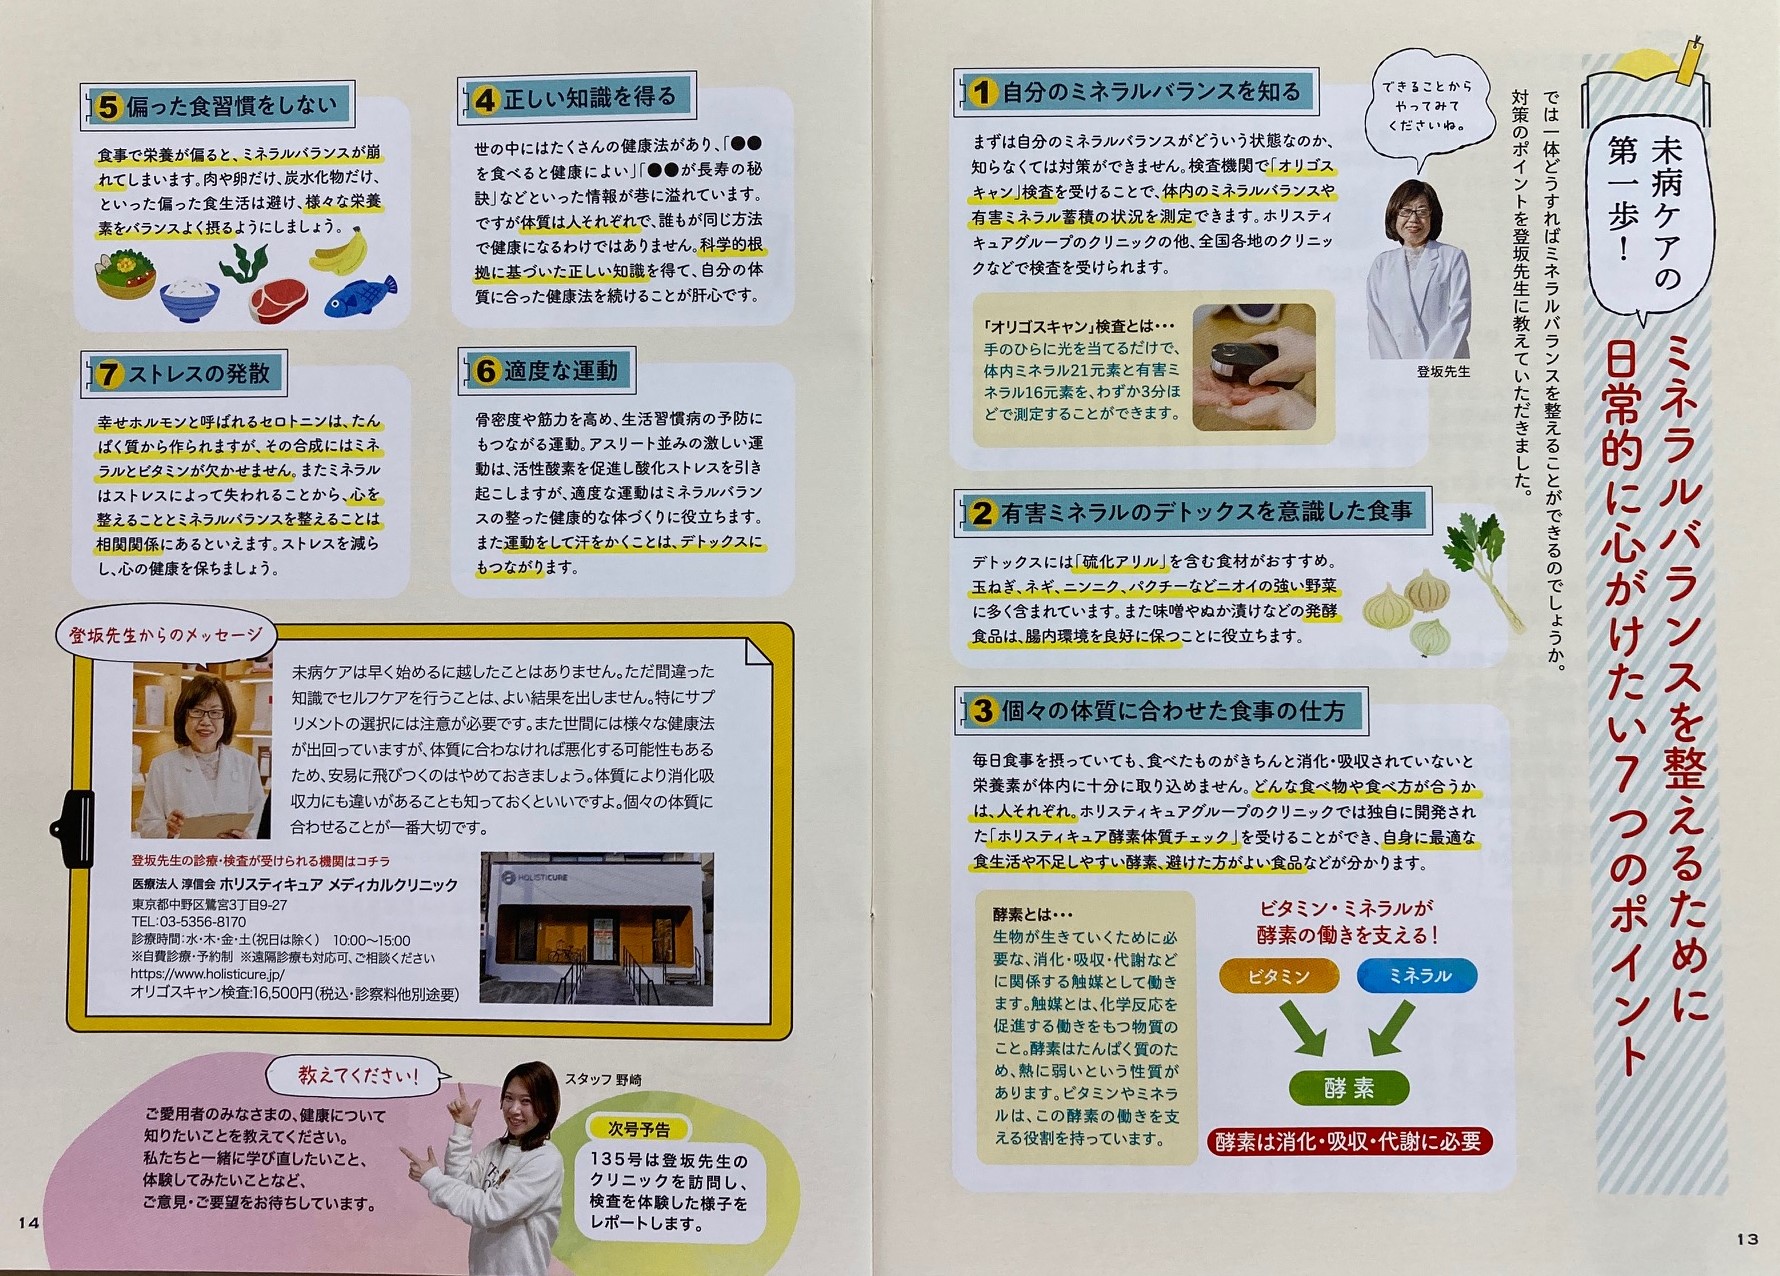 未病ケアの
第一歩!
ミネラルバランスを整えるために
日常的に心がけたい7つのポイント
では一体どうすればミネラルバランスを整えることができるのでしょうか。
対策のポイントを登坂先生に教えていただきました。
できることから
やってみて
くださいね。
登坂先生
1 自分のミネラルバランスを知る
まずは自分のミネラルバランスがどういう状態なのか、
知らなくては対策ができません。検査機関で「オリゴス
キャン」検査を受けることで、体内のミネラルバランスや
有害ミネラル蓄積の状況を測定できます。ホリスティ
キュアグループのクリニックの他、全国各地のクリニッ
クなどで検査を受けられます。
「オリゴスキャン」検査とは・・・
手のひらに光を当てるだけで、
体内ミネラル21元素と有害ミ
ネラル16元素を、わずか3分ほ
どで測定することができます。
2 有害ミネラルのデトックスを意識した食事
デトックスには「硫化アリル」を含む食材がおすすめ。
玉ねぎ、ネギ、ニンニク、パクチーなどニオイの強い野菜
に多く含まれています。また味噌やぬか漬けなどの発酵
食品は、腸内環境を良好に保つことに役立ちます。
3 個々の体質に合わせた食事の仕方
毎日食事を摂っていても、食べたものがきちんと消化・吸収されていないと
栄養素が体内に十分に取り込めません。どんな食べ物や食べ方が合うか
は、人それぞれ。ホリスティキュアグループのクリニックでは独自に開発され
た「ホリスティキュア酵素体質チェック」を受けることができ、自身に最適な
食生活や不足しやすい酵素、避けた方がよい食品などが分かります。
酵素とは・・・
生物が生きていくために必
要な、消化・吸収・代謝など
に関係する触媒として働き
ます。触媒とは、化学反応を
促進する働きをもつ物質の
こと。酵素はたんぱく質のた
め、熱に弱いという性質が
あります。ビタミンやミネラ
ルは、この酵素の働きを支
える役割を持っています。
ビタミン・ミネラルが
酵素の働きを支える!
ビタミン
ミネラル
酵素
酵素は消化・吸収・代謝に必要
13
4 正しい知識を得る
世の中にはたくさんの健康法があり、「●●
を食べると健康によい」「●●が長寿の秘
訣」などといった情報が巷に溢れています。
ですが体質は人それぞれで、誰もが同じ方法
で健康になるわけではありません。科学的根
拠に基づいた正しい知識を得て、自分の体
質に合った健康法を続けることが肝心です。
5 偏った食習慣をしない
食事で栄養が偏ると、ミネラルバランスが崩
れてしまいます。肉や卵だけ、炭水化物だけ、
といった偏った食生活は避け、様々な栄養
素をバランスよく摂るようにしましょう。
6 適度な運動
骨密度や筋力を高め、生活習慣病の予防に
もつながる運動。アスリート並みの激しい運
動は、活性酸素を促進し酸化ストレスを引き
起こしますが、適度な運動はミネラルバラン
スの整った健康的な体づくりに役立ちます。
また運動をして汗をかくことは、デトックスに
もつながります。
7 ストレスの発散
幸せホルモンと呼ばれるセロトニンは、たん
ぱく質から作られますが、その合成にはミネ
ラルとビタミンが欠かせません。またミネラル
はストレスによって失われることから、心を
整えることとミネラルバランスを整えることは
相関関係にあるといえます。ストレスを減ら
し、心の健康を保ちましょう。
登坂先生からのメッセージ
未病ケアは早く始めるに越したことはありません。ただ間違った
知識でセルフケアを行うことは、よい結果を出しません。特にサプ
リメントの選択には注意が必要です。また世間には様々な健康法
が出回っていますが、体質に合わなければ悪化する可能性もある
ため、安易に飛びつくのはやめておきましょう。体質により消化吸
収力にも違いがあることも知っておくといいですよ。個々の体質に
合わせることが一番大切です。
登坂先生の診療・検査が受けられる機関はコチラ
医療法人 淳信会 ホリスティキュア メディカルクリニック
東京都中野区鷺宮3丁目9-27
TEL:03-5356-8170
診療時間:水・木・金・土(祝日は除く) 10:00〜15:00
※自費診療・予約制 ※遠隔診療も対応可、ご相談ください
https://www.holisticure.jp/
オリゴスキャン検査:16,500円(税込・診察料他別途要)
HOLISTICURE
教えてください!
スタッフ 野崎
ご愛用者のみなさまの、健康について
知りたいことを教えてください。
私たちと一緒に学び直したいこと、
体験してみたいことなど、
ご意見・ご要望をお待ちしています。
次号予告
135号は登坂先生の
クリニックを訪問し、
検査を体験した様子を
レポートします。
14